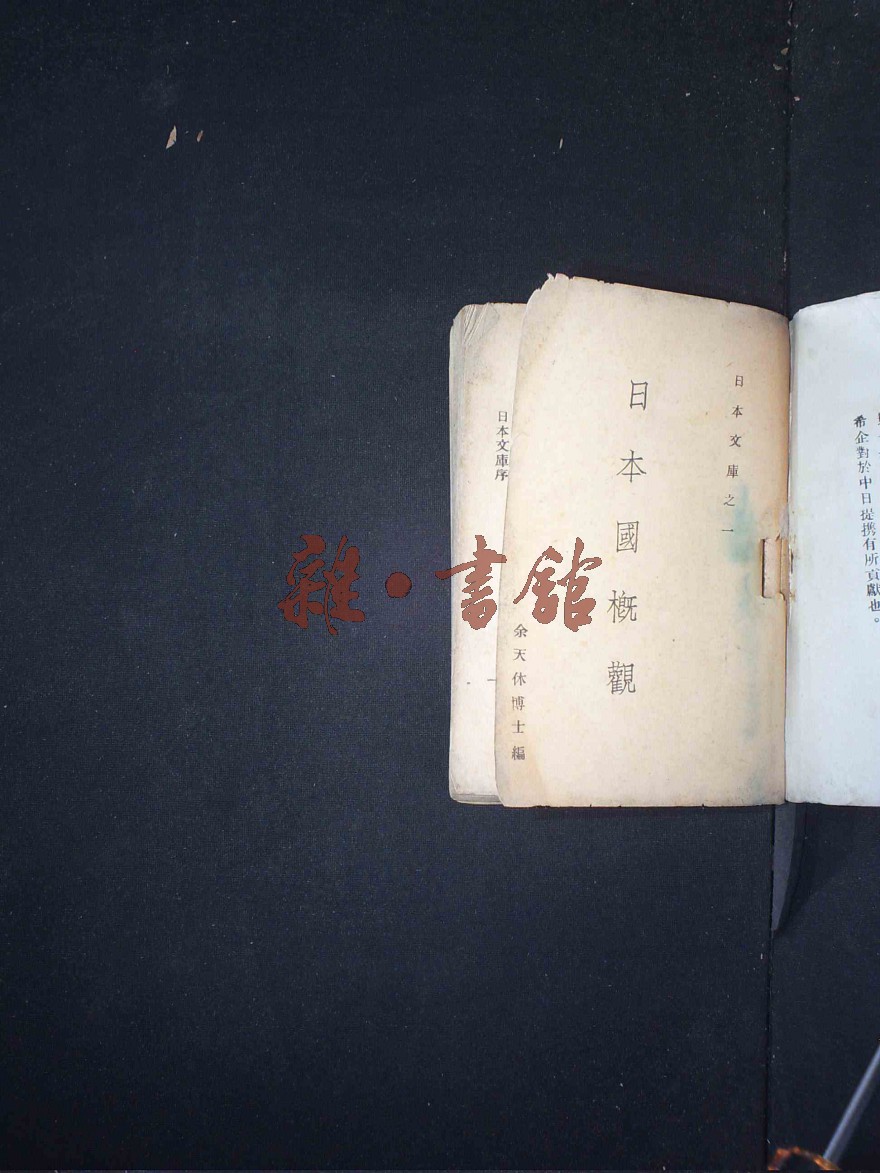 希企對於中日提携有所貢獻也。
日本文庫之一
日本國概觀
余天休博士編
日本文庫序
一
雜·書館